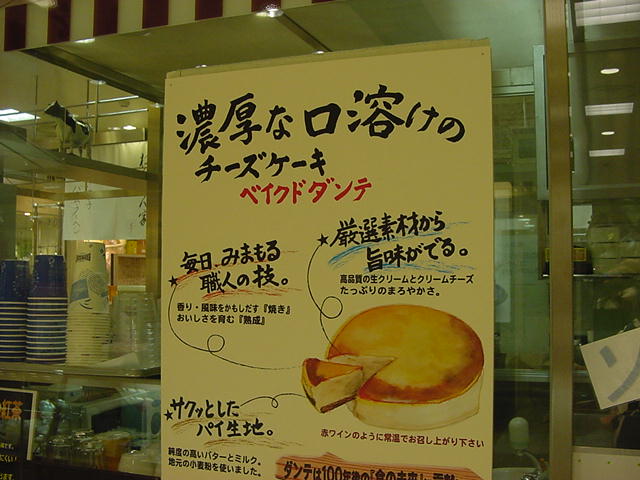 濃厚な口溶けの
チーズケーキ
ベイクドダンテ
厳選素材から
旨味がでる。
高品質の生クリームとクリームチーズ
たっぷりのまろやかさ。
毎日、みまもる
職人の技。
香り・風味をかもしだす『焼き』
おいしさを育む『熟成』
サクッとした
パイ生地。
純度の高いバターとミルク、
地元の小麦粉を使いました。
赤ワインのように常温でお召し上がり下さい
ダンテは100年後の「食の未来」